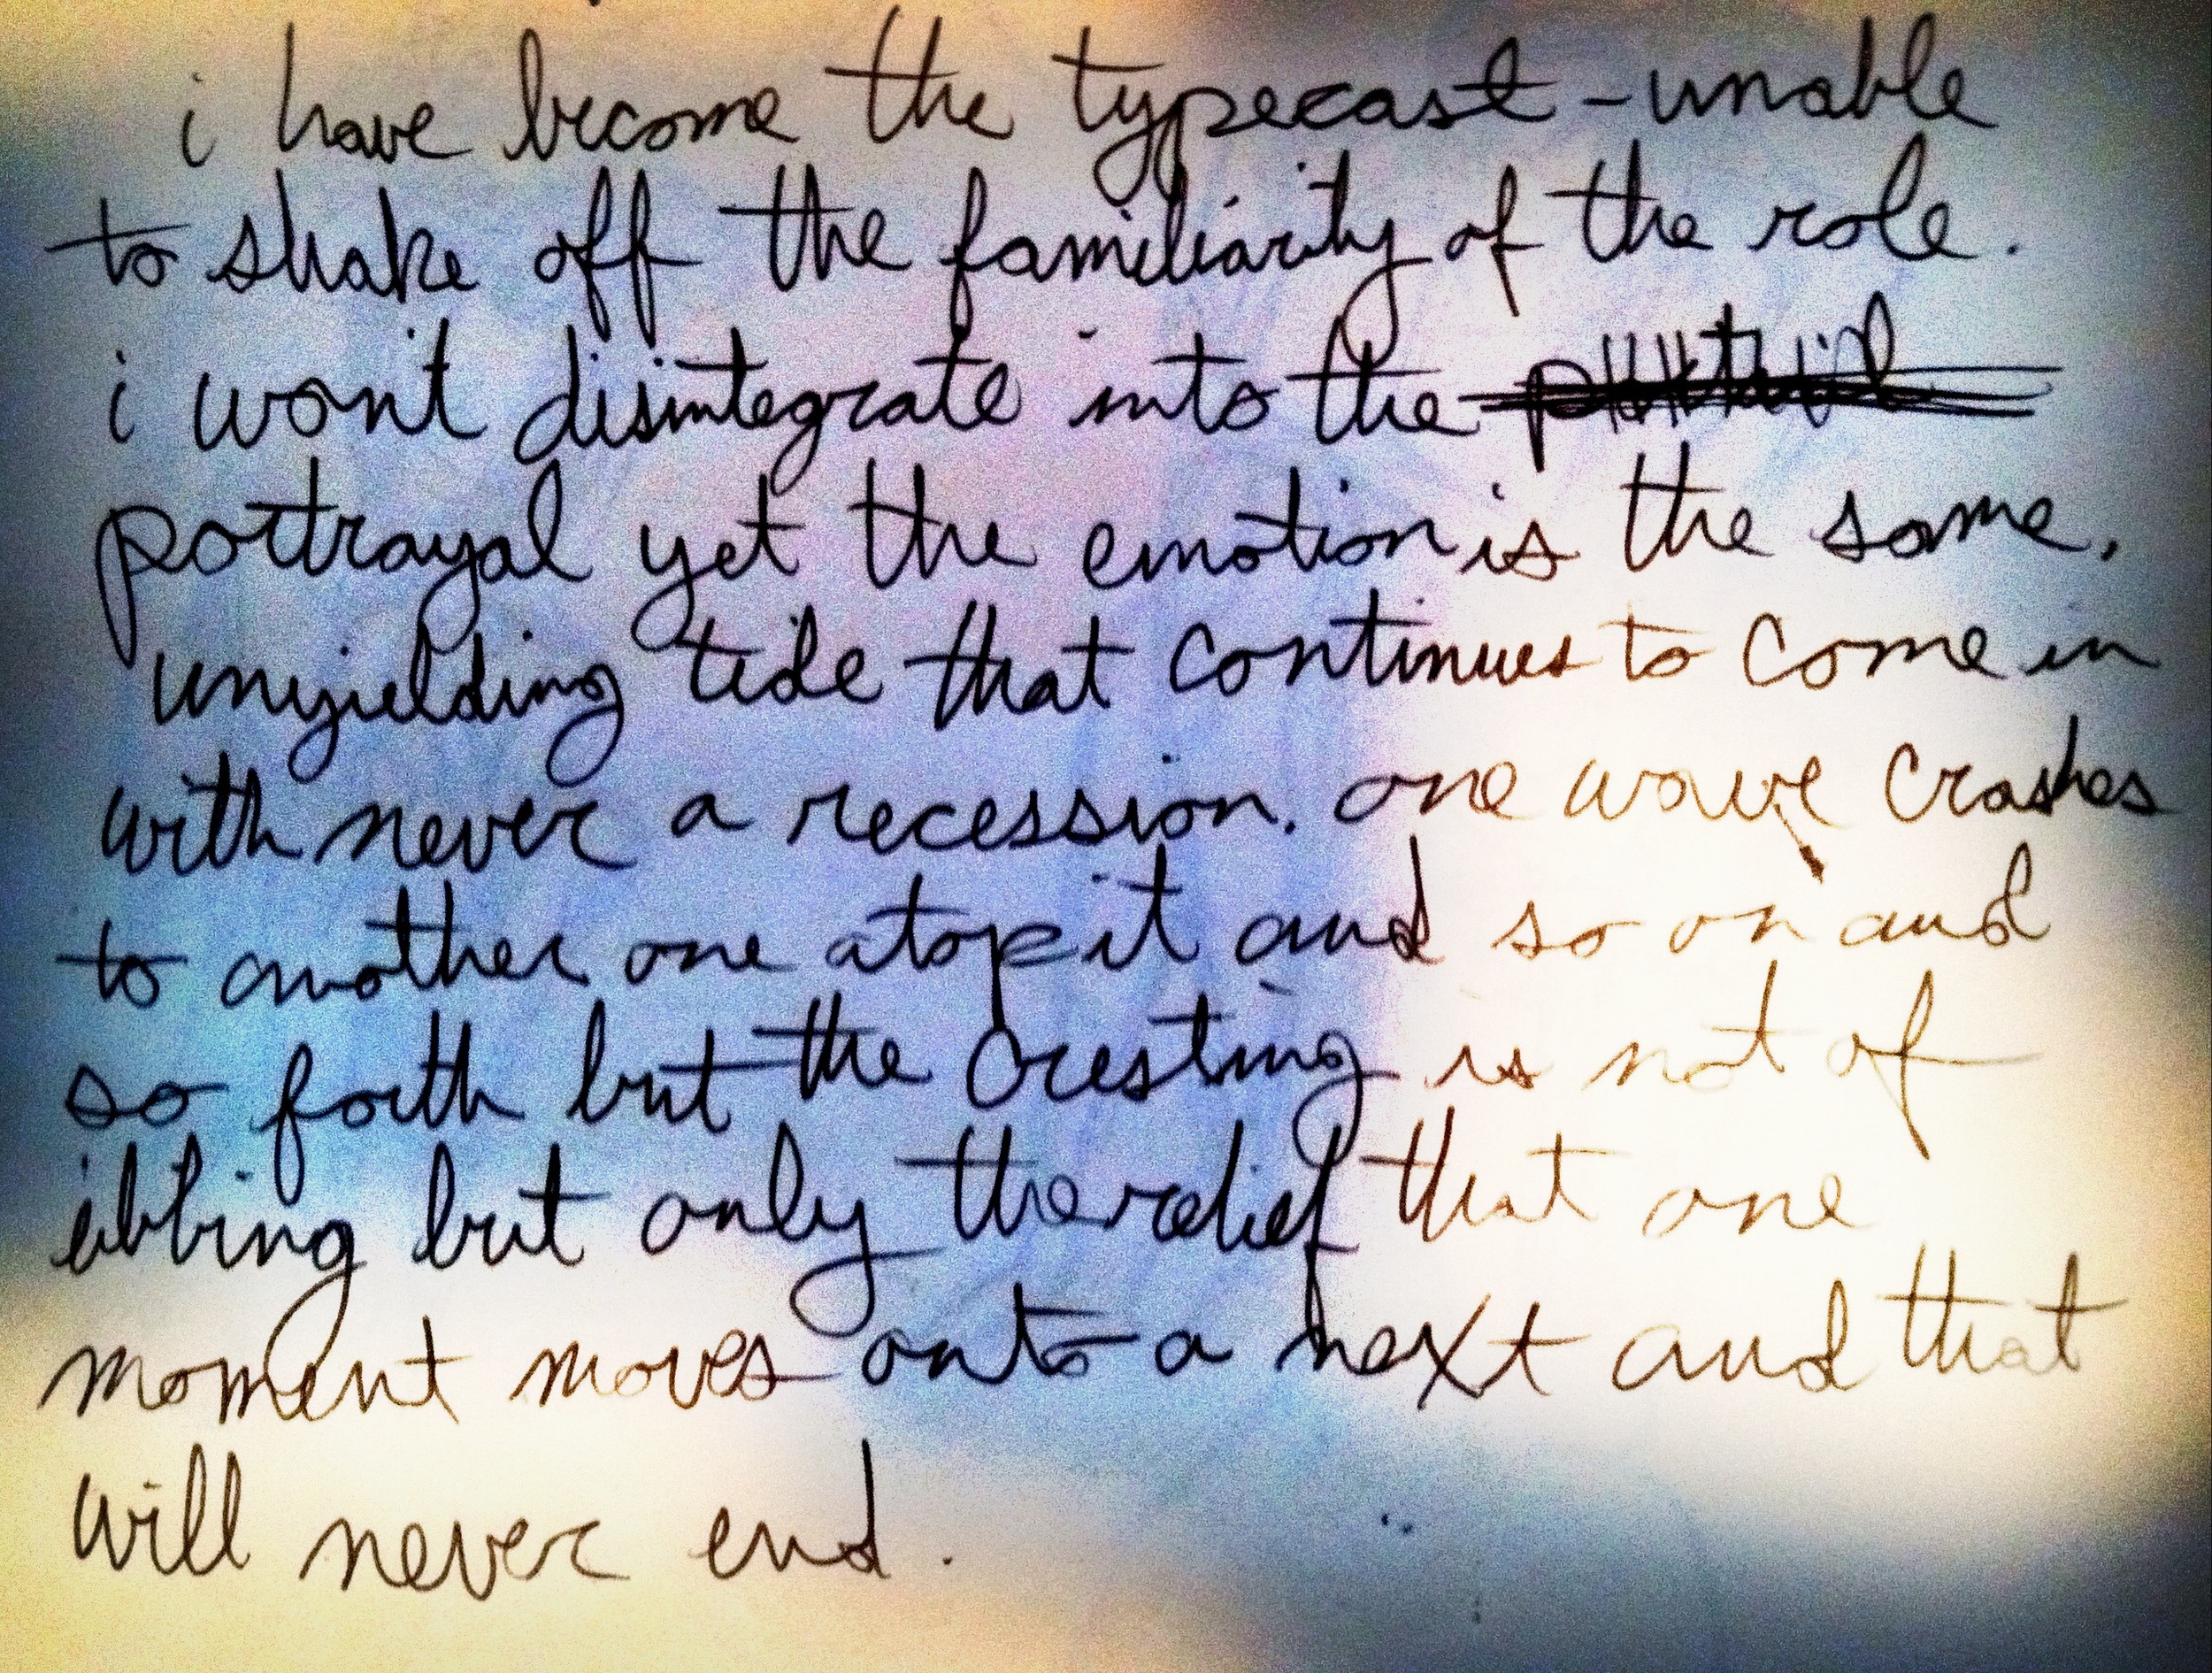 i have become the typecast - unable
to shake off the familiarity of the role.
i won't disintegrate into the
portrayal yet the emotion is the same.
unyielding tide that continues to come in
with never a recession. one wave crashes
to another one atop it and so on and
so forth but the cresting is not of
ebbing but only the relief that one
moment moves onto a next and that
will never end.